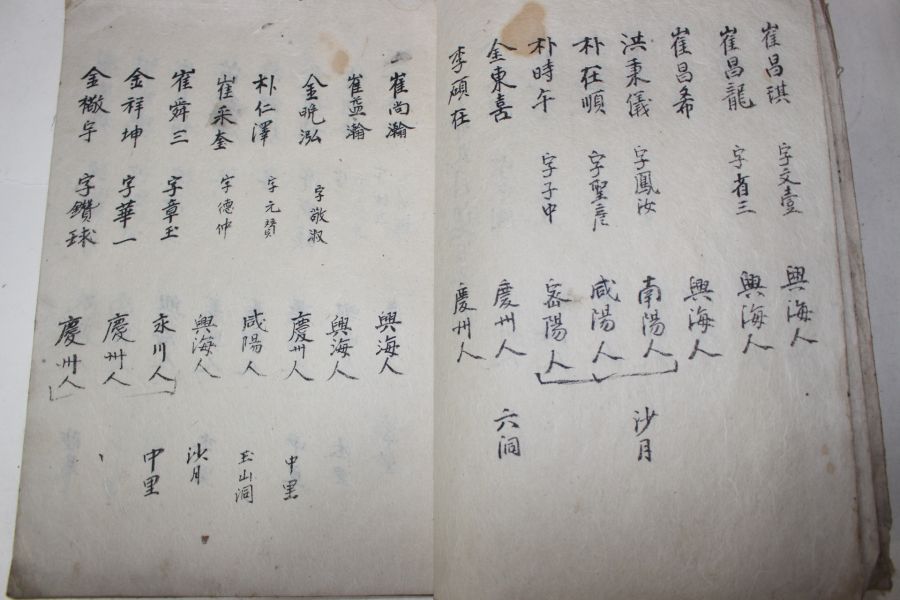 崔昌琪 字文壹 興海人
崔昌龍 字省三 興海人
崔昌希 興海人
洪秉儀 字鳳汝 南陽人 沙月
朴在順 字聖彦 咸陽人
朴時午 字子中 密陽人
金東喜 慶州人 六洞
李碩在 慶州人
崔尚瀚 興海人
崔孟瀚 興海人
金晩泓 字敬淑 慶州人 中里
朴仁澤 字元賛 咸陽人 玉山洞
崔采奎 字德仲 興海人 沙月
崔舜三 字章玉 永川人 中里
金祥坤 字華一 慶州人
金橃宇 字鑽球 慶州人